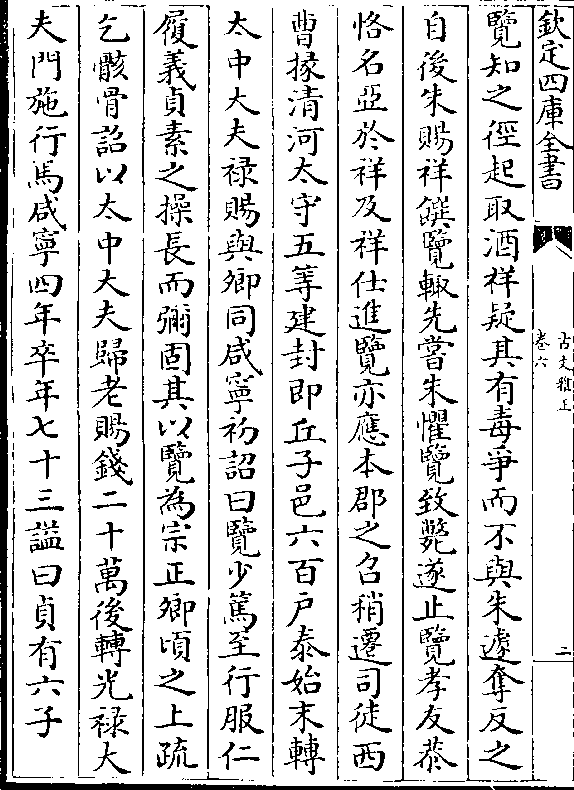 欽定四庫全書
古文雅正
卷六
二
覽知之徑起取酒祥疑其有毒爭而不與朱遽奪反之
自後朱賜祥饌覽輙先嘗朱懼覽致斃遂止覽孝友恭
恪名亞於祥及祥仕進覽亦應本郡之召稍遷司徒西
曹掾清河太守五等建封即丘子邑六百戸泰始末轉
太中大夫禄賜與卿同咸寧初詔曰覽少篤至行服仁
履義貞素之操長而彌固其以覽為宗正卿頃之上疏
乞骸骨詔以太中大夫歸老賜錢二十萬後轉光禄大
夫門施行馬咸寧四年卒年七十三謚曰貞有六子